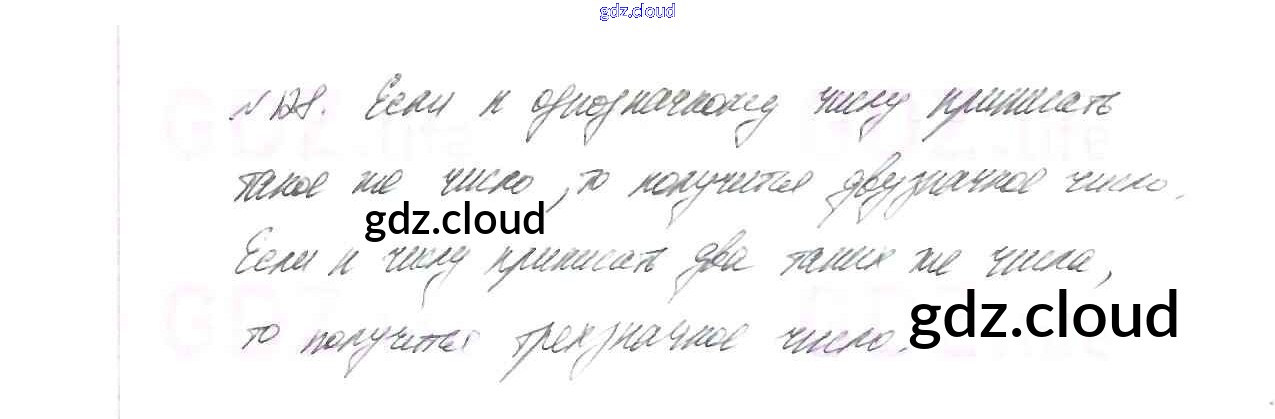 gdz.cloud
№128. Если к однозначному числу приписать
такое же число, то получится двузначное число.
gdz.cloud
Если к числу приписать два таких же числа,
gdz.cloud
то получится трехзначное число.